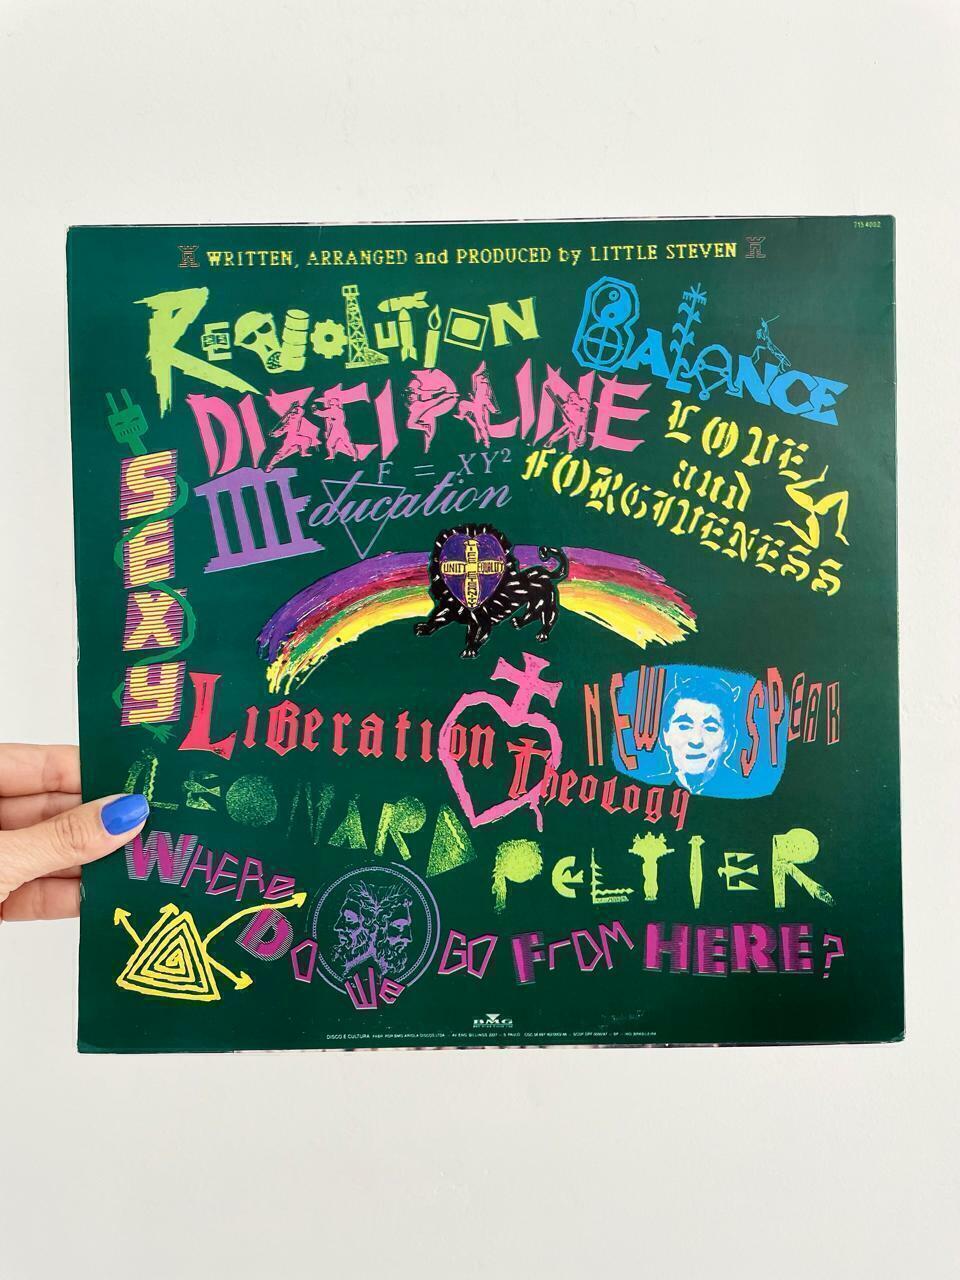 715 4002
WRITTEN, ARRANGED and PRODUCED by LITTLE STEVEN
REVOLUTION
BALANCE
DISCIPLINE
LOVE
and
FORGIVENESS
F = XY²
Education
SEXY
UNITY EQUALITY
LiBeration
Theology
NEW SPEAK
LEONARD
PELTIER
WHERE
DO
WE
GO FrOM HERE?
BMG
DISCO E CULTURA